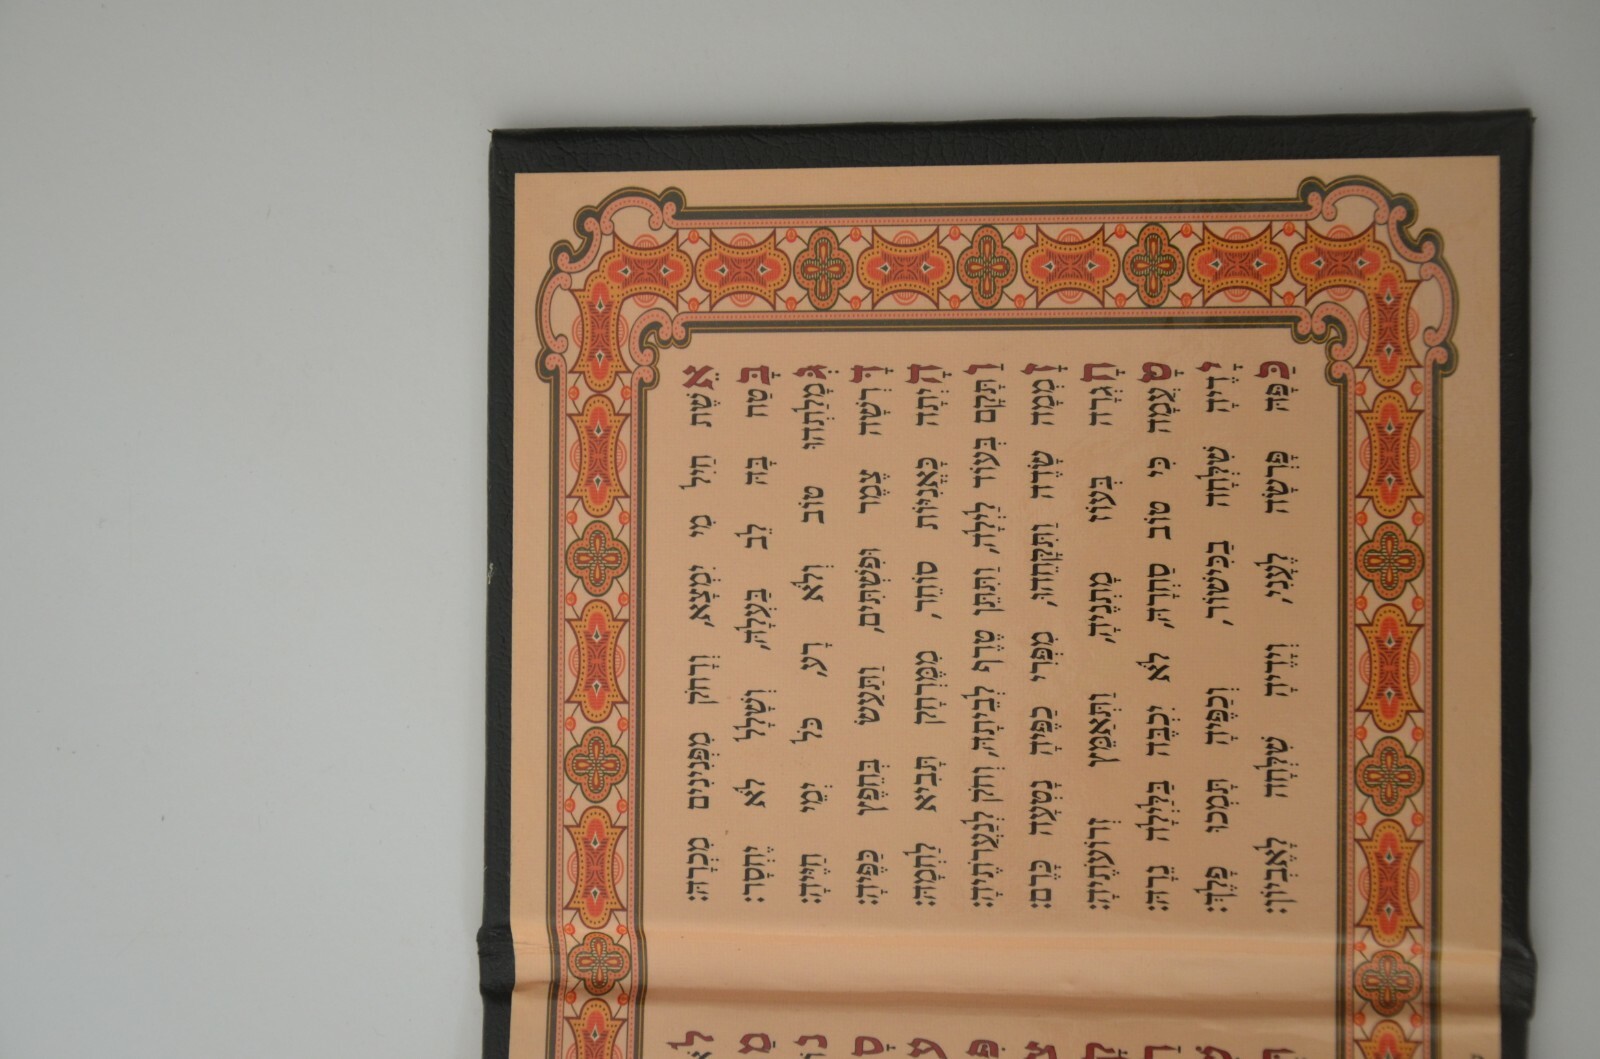 אֵשֶׁת חַיִל מִי יִמְצָא, וְרָחֹק מִפְּנִינִים מִכְרָהּ:
בָּטַח בָּהּ לֵב בַּעְלָהּ, וְשָׁלָל לֹא יֶחְסָר:
גְּמָלַתְהוּ טוֹב וְלֹא רָע, כֹּל יְמֵי חַיֶּיהָ:
דָּרְשָׁה צֶמֶר וּפִשְׁתִּים, וַתַּעַשׂ בְּחֵפֶץ כַּפֶּיהָ:
הָיְתָה כָּאֳנִיּוֹת סוֹחֵר, מִמֶּרְחָק תָּבִיא לַחְמָהּ:
וַתָּקָם בְּעוֹד לַיְלָה, וַתִּתֵּן טֶרֶף לְבֵיתָהּ, וְחֹק לְנַעֲרֹתֶיהָ:
זָמְמָה שָׂדֶה וַתִּקָּחֵהוּ, מִפְּרִי כַפֶּיהָ נָטְעָה כָּרֶם:
חָגְרָה בְּעוֹז מָתְנֶיהָ, וַתְּאַמֵּץ זְרוֹעֹתֶיהָ:
טָעֲמָה כִּי טוֹב סַחְרָהּ, לֹא יִכְבֶּה בַּלַּיְלָה נֵרָהּ:
יָדֶיהָ שִׁלְּחָה בַכִּישׁוֹר, וְכַפֶּיהָ תָּמְכוּ פָלֶךְ:
כַּפָּהּ פָּרְשָׂה לֶעָנִי, וְיָדֶיהָ שִׁלְּחָה לָאֶבְיוֹן: